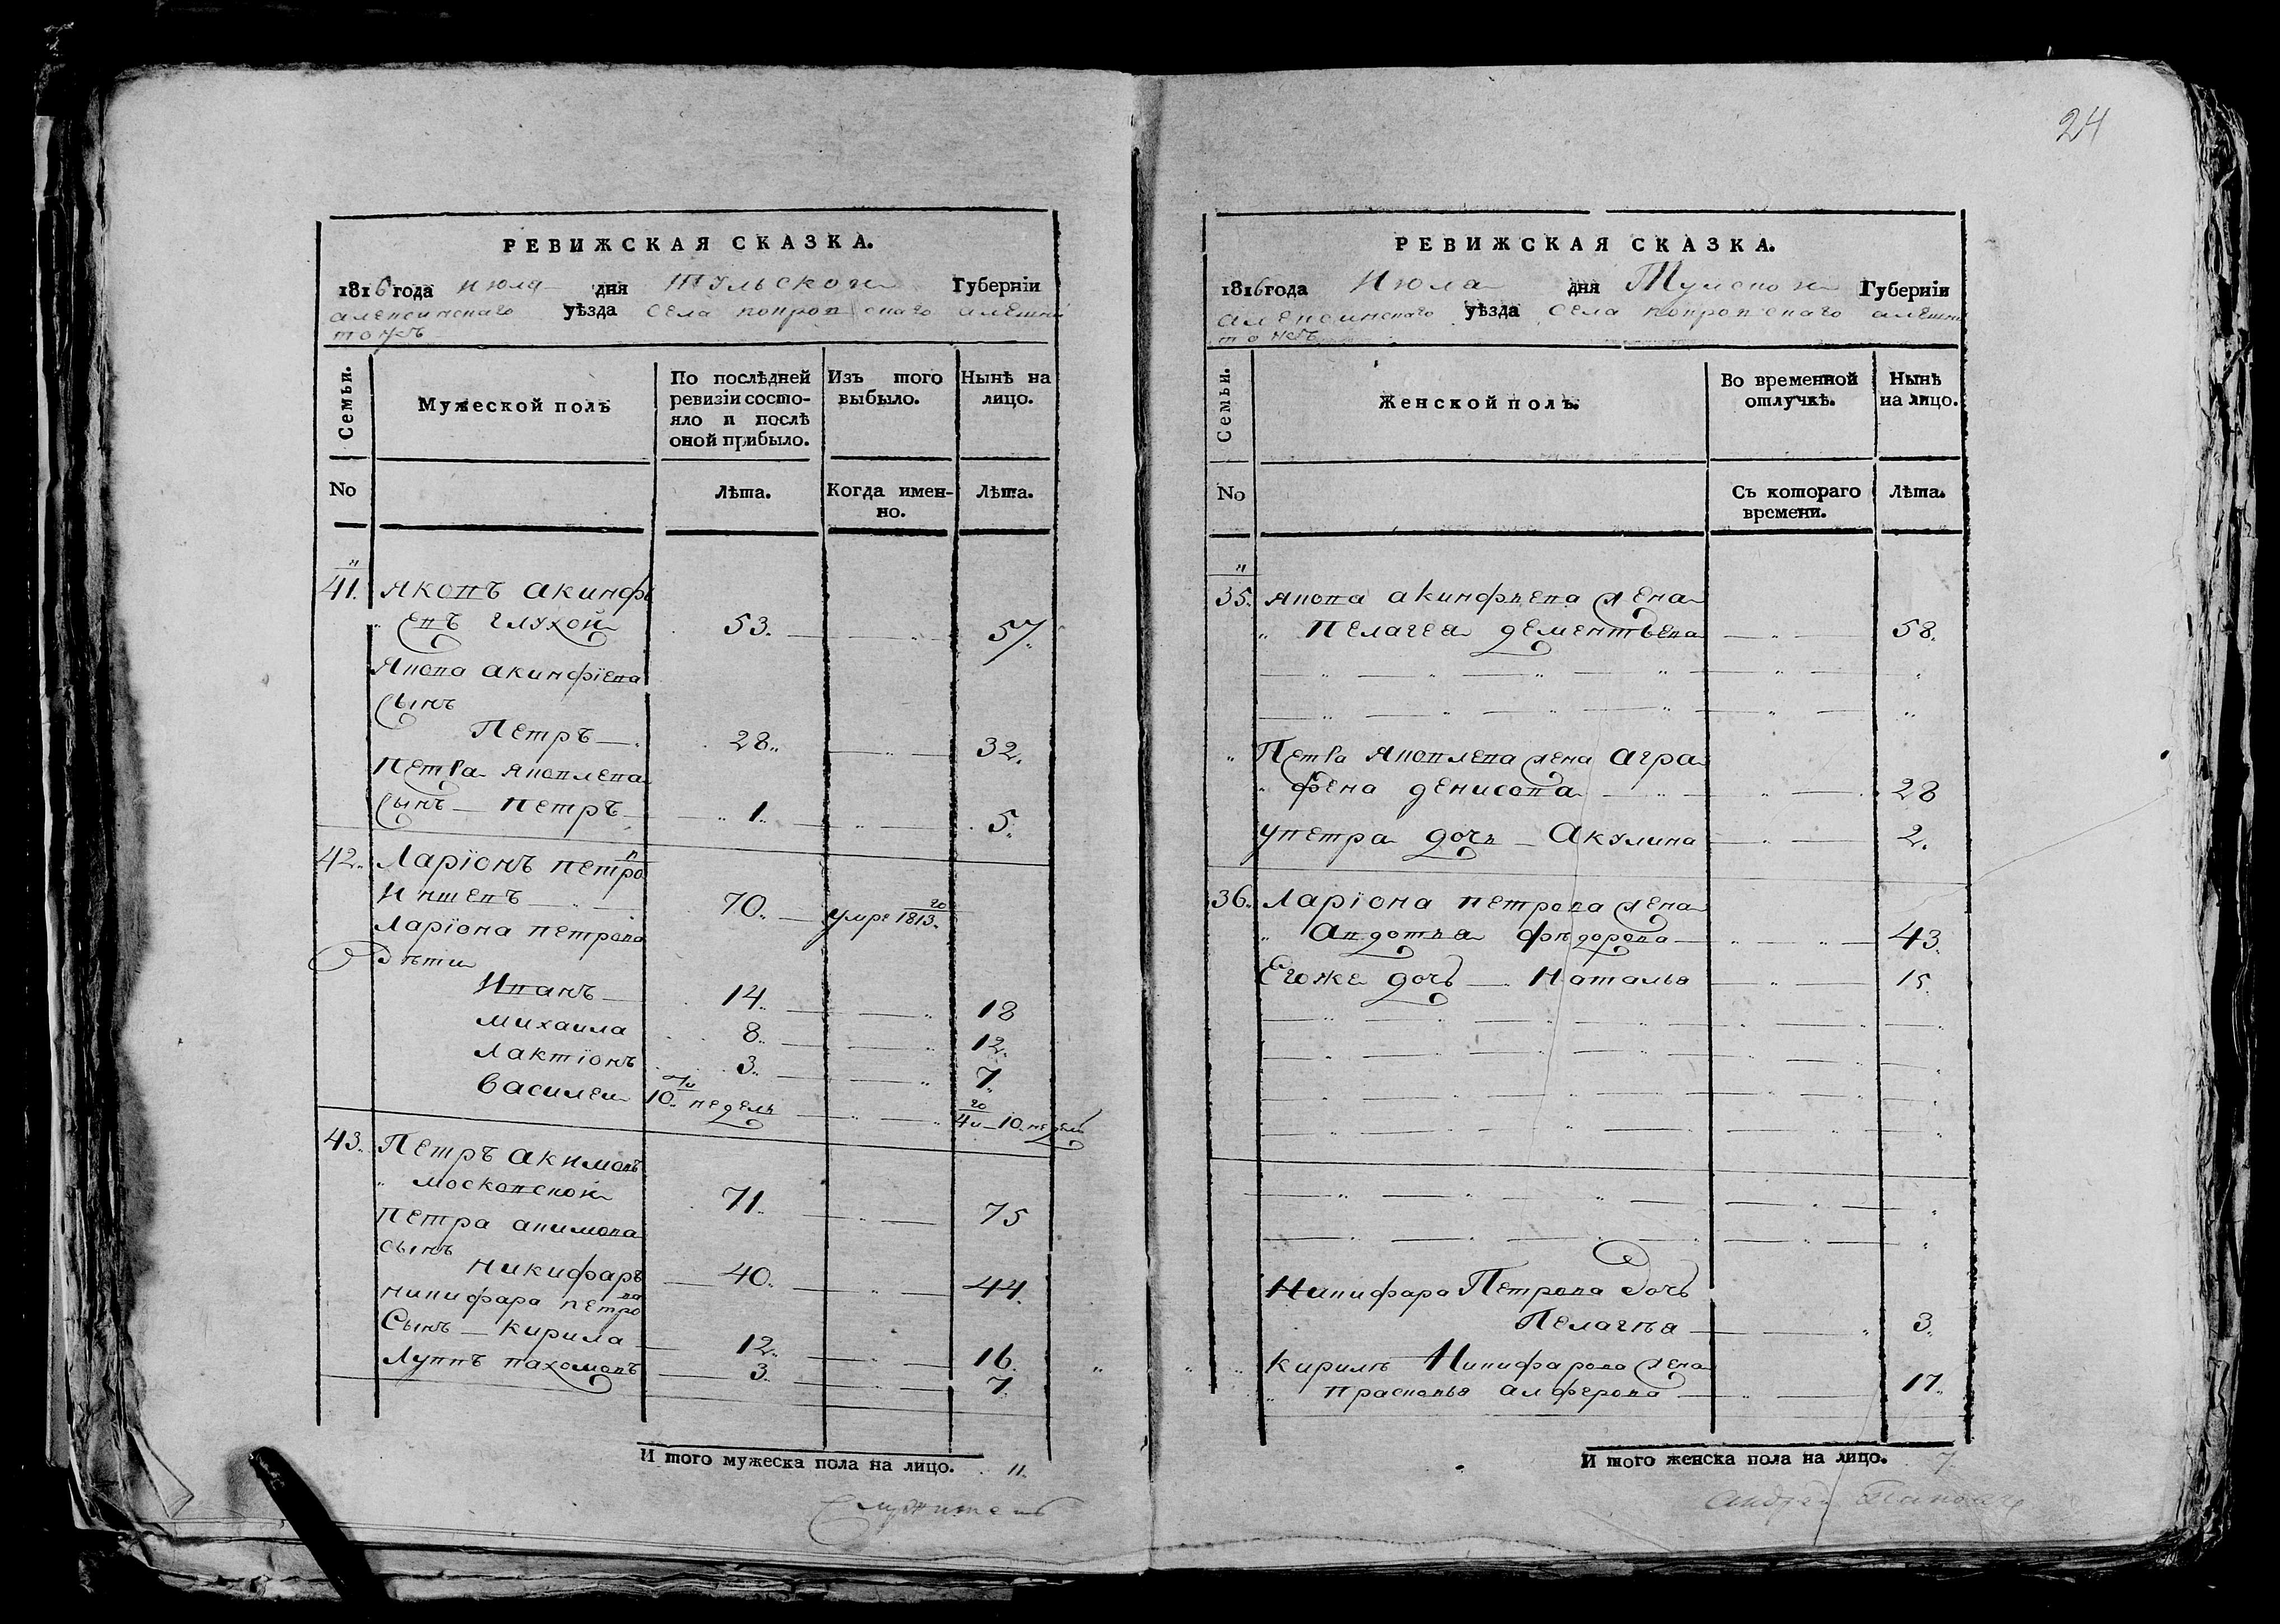 24
РЕВИЖСКАЯ СКАЗКА.
1816 года июля дня Тульской Губерніи
алексинскаго уѣзда села покровскаго алешни
тожъ
Семьи.
Мужеской полъ
По послѣдней ревизіи состояло и послѣ оной прибыло.
Изъ того выбыло.
Нынѣ на лицо.
No
Лѣта.
Когда именно.
Лѣта.
41. Яковъ акинфі
евъ глухой 53. 57.
Якова акинфіева
сынъ
Петръ 28. 32.
Петра яковлева
сынъ Петръ 1. 5.
42. Ларіонъ петро в
Ившевъ 70. умре 1813 го
Ларіона петрова
Дѣти
Иванъ 14. 18
михаила 8. 12.
Лактіонъ 3. 7.
Василеи 10ти недель 4 го и 10 недель
43. Петръ акимовъ
московской 71. 75
Петра акимова
сынъ
никифаръ 40. 44.
никифара петро ва
Сынъ кирила 12. 16.
Луппъ пахомовъ 3. 7.
И того мужеска пола на лицо. 11.
Служитель
РЕВИЖСКАЯ СКАЗКА.
1816 года Июля дня Тульской Губерніи
алексинскаго уѣзда села покровскаго алешни
тожъ
Семьи.
Женской полъ.
Во временной отлучкѣ.
Нынѣ на лицо.
No
Съ котораго времени.
Лѣта.
35. Якова акинфьева жена
Пелагея дементьева 58.
Петра яковлева жена агра
фена денисова 28
у петра дочь Акулина 2.
36. Ларіона петрова жена
Авдотья фѣдорова 43.
Егоже дочь Наталья 15.
Никифара Петрова дочь
Пелагѣя 3.
кирилы Никифарова жена
прасковья алферова 17.
И того женска пола на лицо. 7
андрей